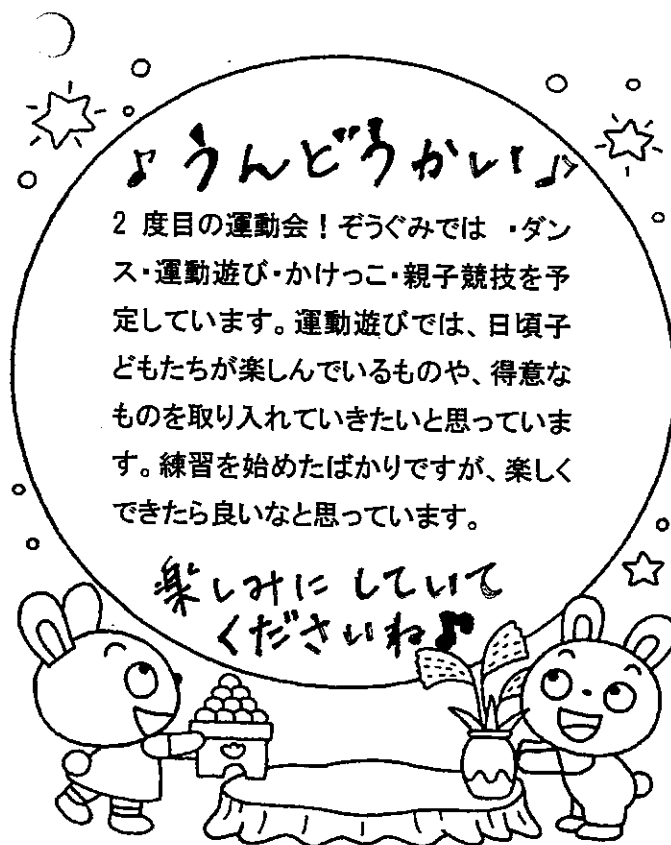 ♪うんどうかい♪
2 度目の運動会！ぞうぐみでは ・ダン
ス・運動遊び・かけっこ・親子競技を予
定しています。運動遊びでは、日頃子
どもたちが楽しんでいるものや、得意な
ものを取り入れていきたいと思っていま
す。練習を始めたばかりですが、楽しく
できたら良いなと思っています。
楽しみにしていて
くださいね♪